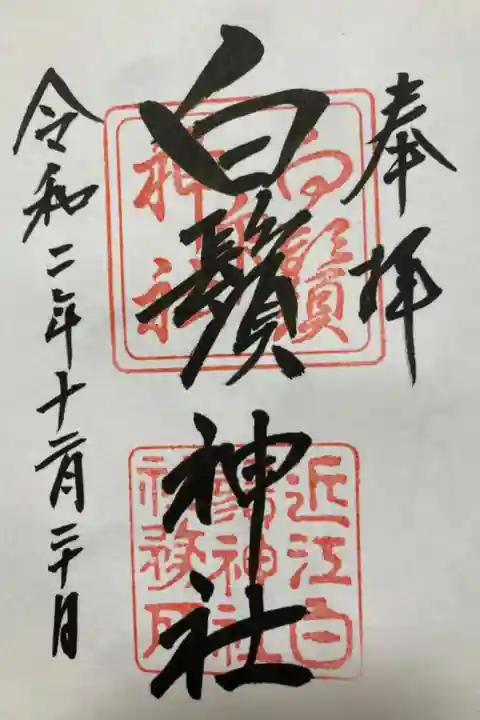 奉拝
白鬚神社
令和二年十二月三十日
白鬚
神社
近江白
鬚神社
社務所